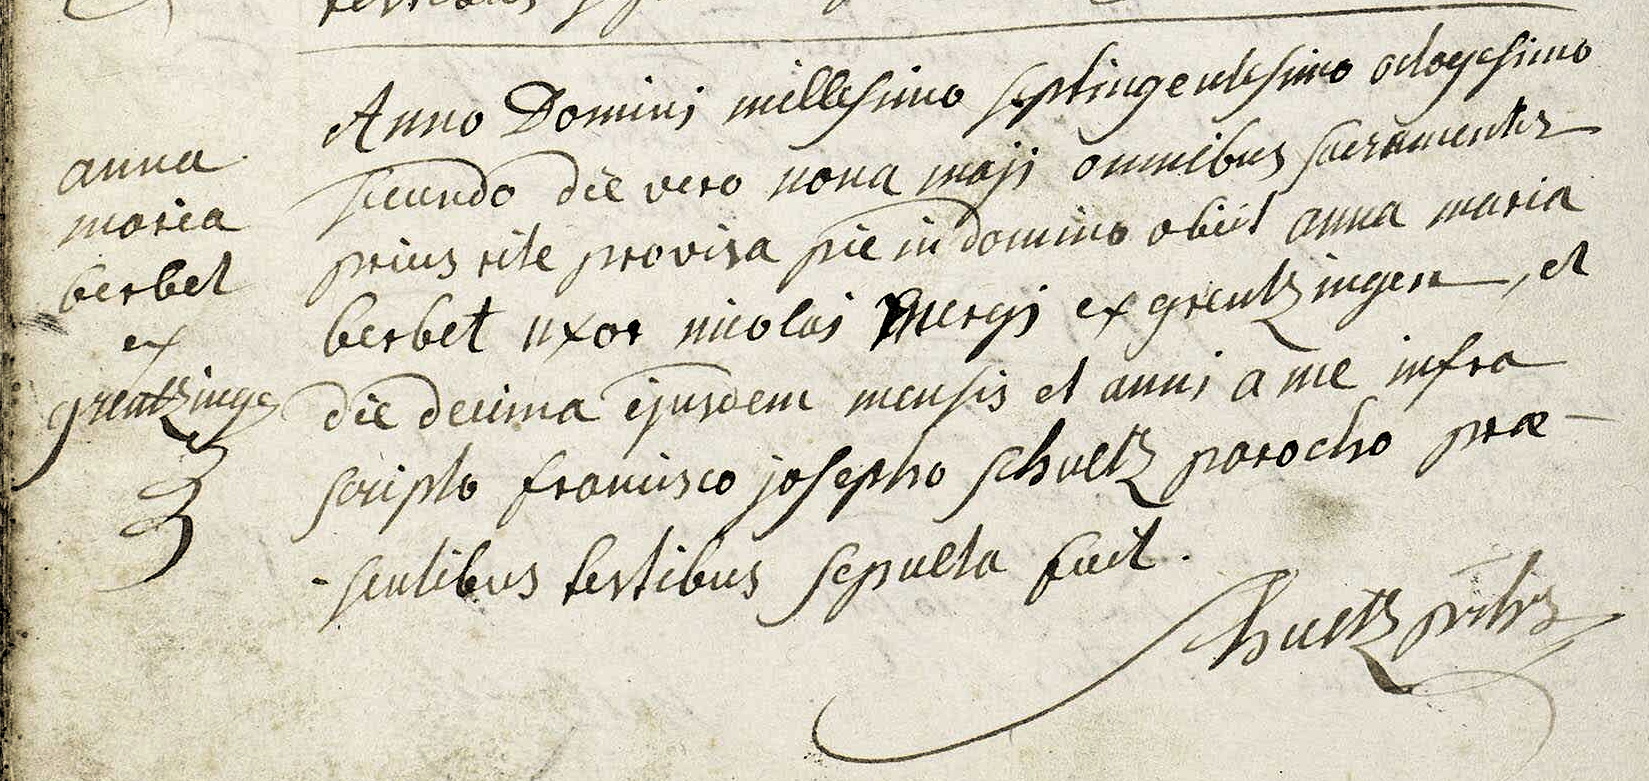 Anno Domini millesimo septingentesimo octogesimo
secundo die vero nona maji omnibus sacramentis
prius rite provisa pie in domino obiit anna maria
berbet uxor nicolai ex grentzingen, et
die decima ejusdem mensis et anni a me infra
scripto francisco josepho schueltz parocho præ-
-sentibus testibus sepulta fuit.
Schueltz
anna
maria
berbet
ex
grentzinge